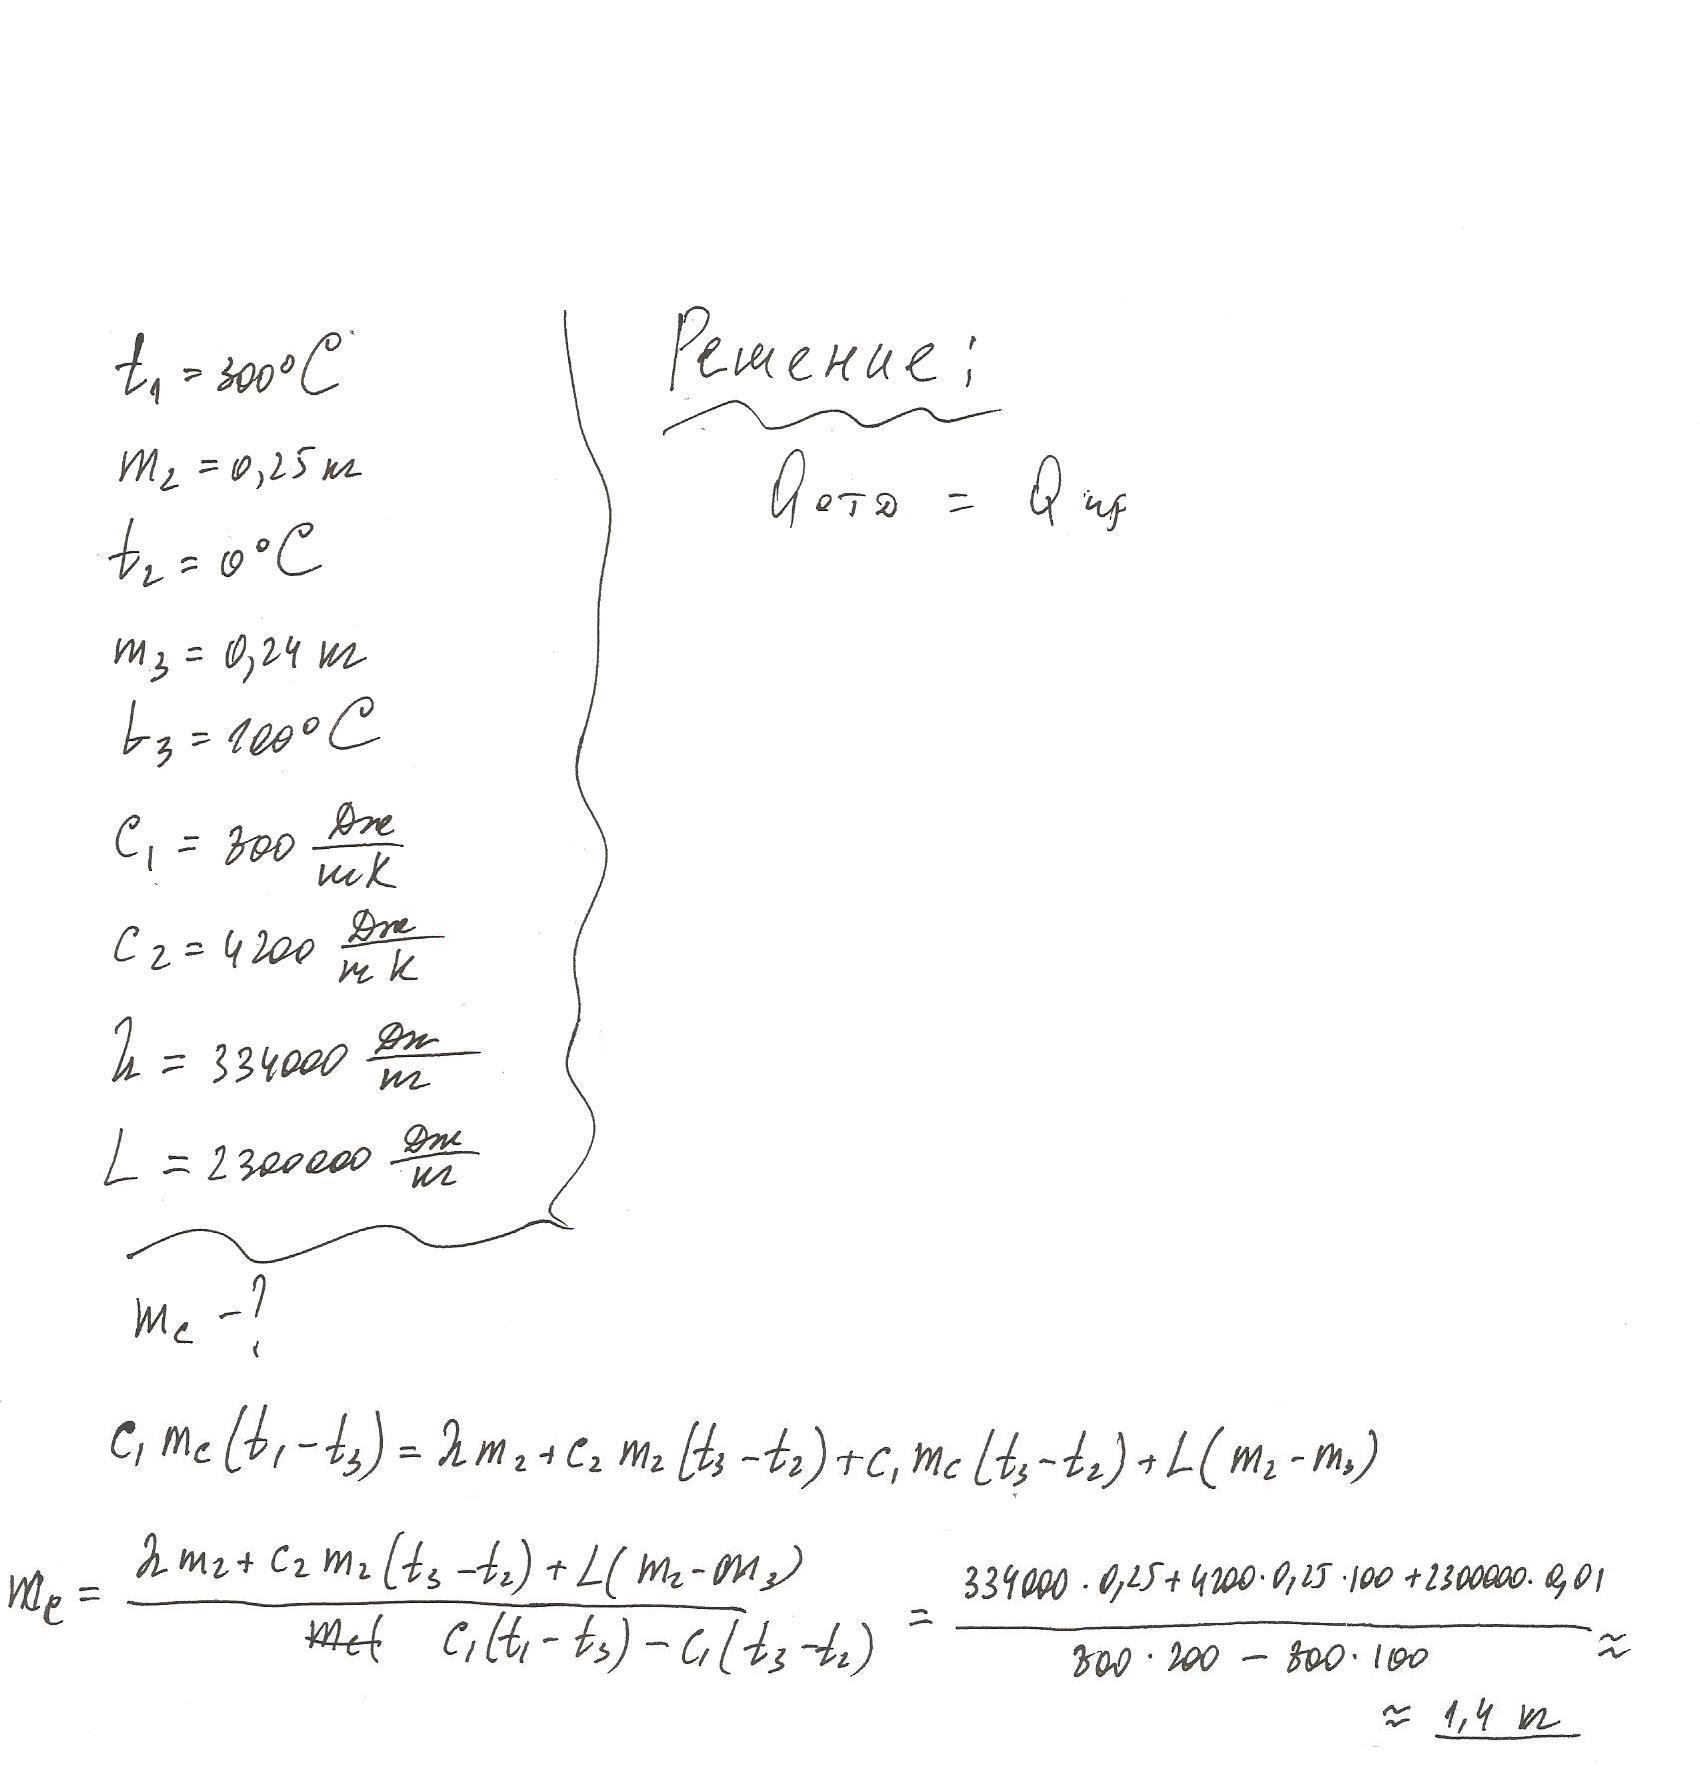 t₁ = 300°C
m₂ = 0,25 кг
t₂ = 0°C
m₃ = 0,24 кг
t₃ = 100°C
C₁ = 800 Дж/кгК
C₂ = 4200 Дж/кгК
λ = 334000 Дж/кг
L = 2300000 Дж/кг
mс - ?
Решение:
Qотд =
C₁ mс (t₁ - t₃) = λ m₂ + C₂ m₂ (t₃ - t₂) + C₁ mс (t₃ - t₂) + L (m₂ - m₃)
mс = (λ m₂ + C₂ m₂ (t₃ - t₂) + L (m₂ - m₃)) / (C₁ (t₁ - t₃) - C₁ (t₃ - t₂)) = (334000 · 0,25 + 4200 · 0,25 · 100 + 2300000 · 0,01) / (800 · 200 - 800 · 100) ≈
≈ 1,4 кг